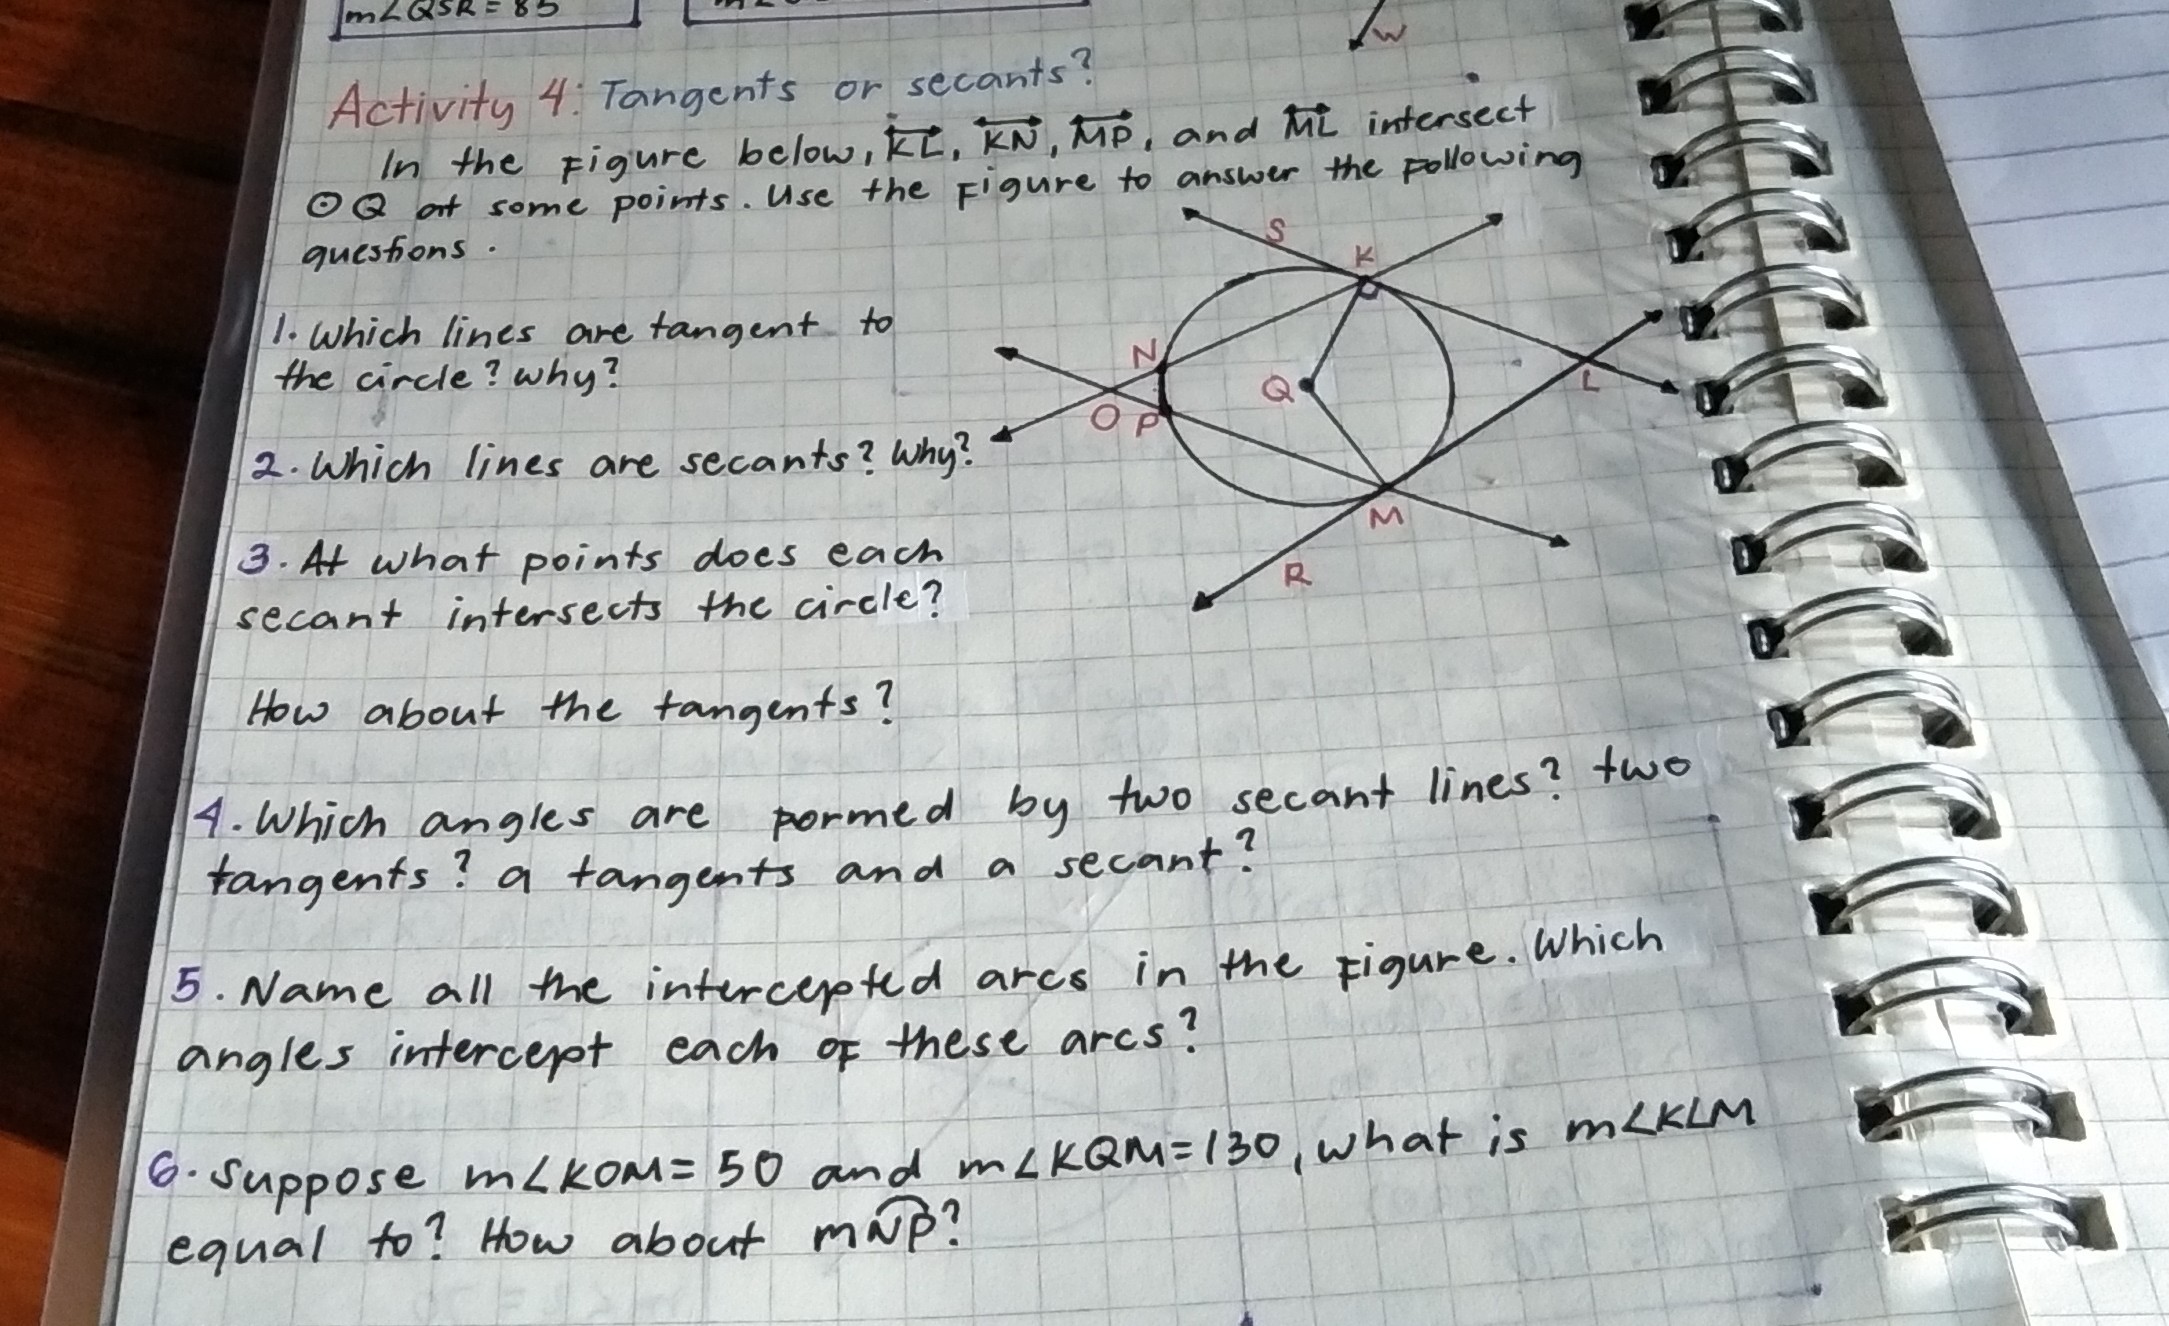 m∠QSR = 85
W
Activity 4: Tangents or secants?
In the Figure below, KL, KN, MP, and ML intersect
⊙Q at some points. Use the Figure to answer the Following
questions.
S
K
1. Which lines are tangent to
the circle? why?
N
Q
L
O P
2. Which lines are secants? Why?
M
R
3. At what points does each
secant intersects the circle?
How about the tangents?
4. Which angles are pormed by two secant lines? two
tangents? a tangents and a secant?
5. Name all the intercepted arcs in the Figure. Which
angles intercept each of these arcs?
6. Suppose m∠KOM = 50 and m∠KQM = 130, what is m∠KLM
equal to? How about mNP?